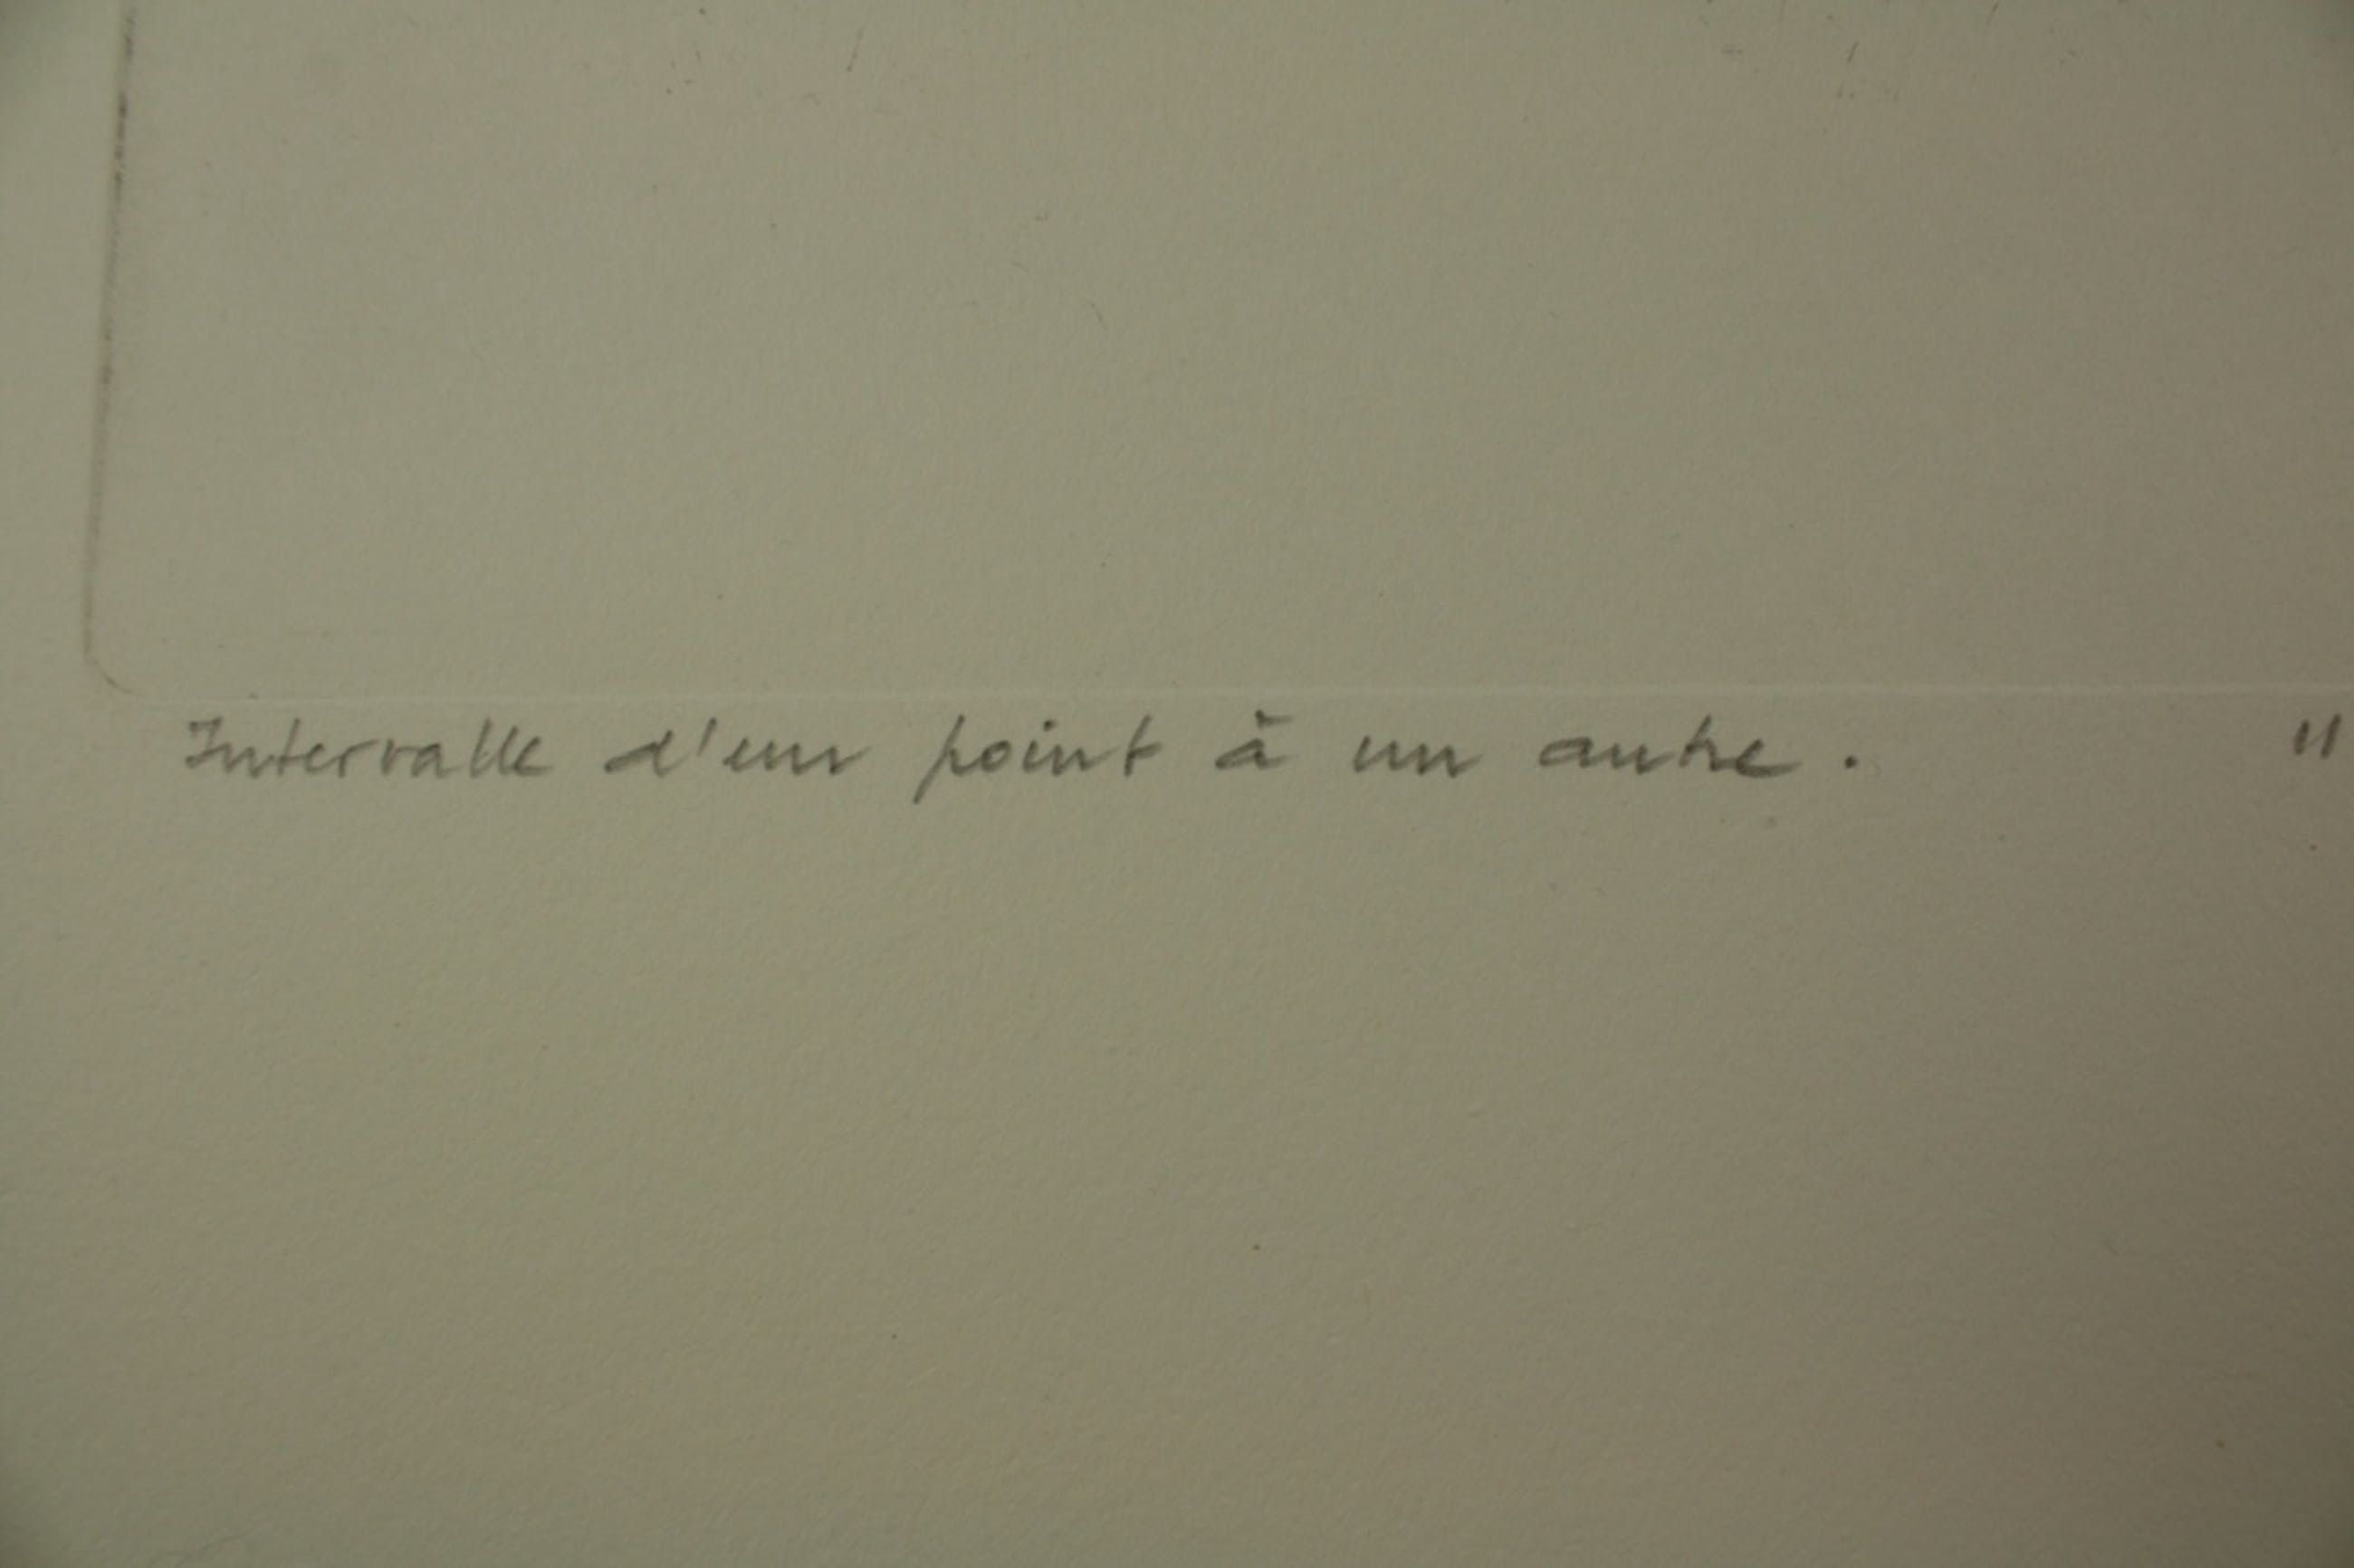 Intervalle d'un point à un autre. "